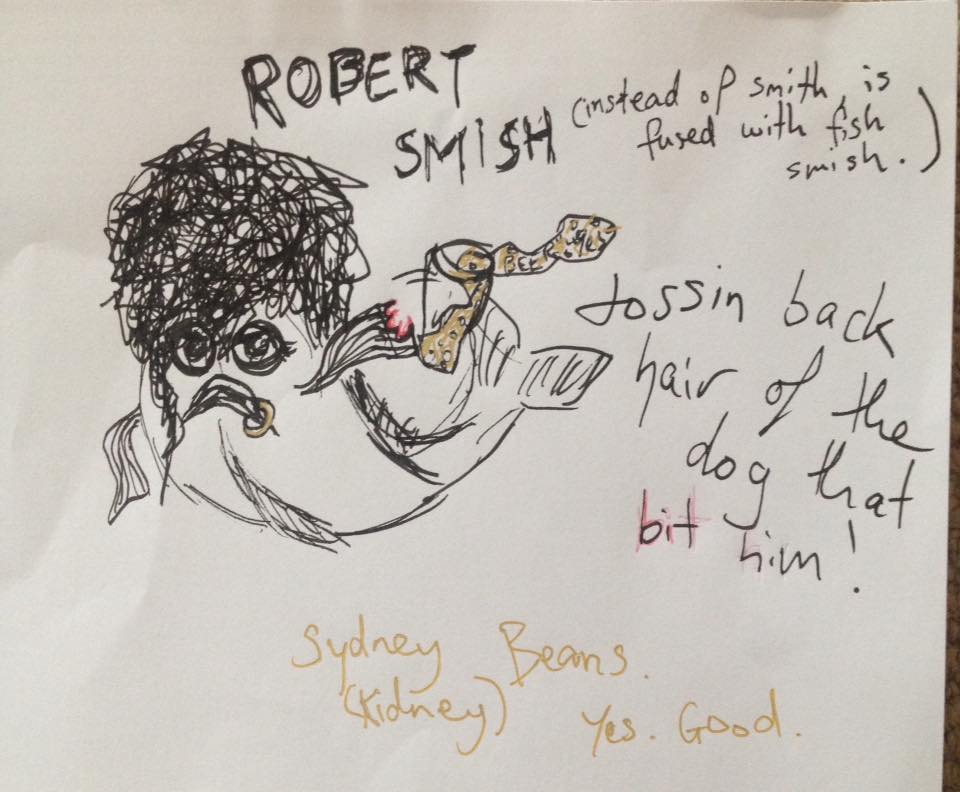 ROBERT
SMISH
(instead of smith, is
fused with fish
smish.)
BEER
tossin back
hair of the
dog that
bit him!
Sydney Beans.
(Kidney) Yes. Good.